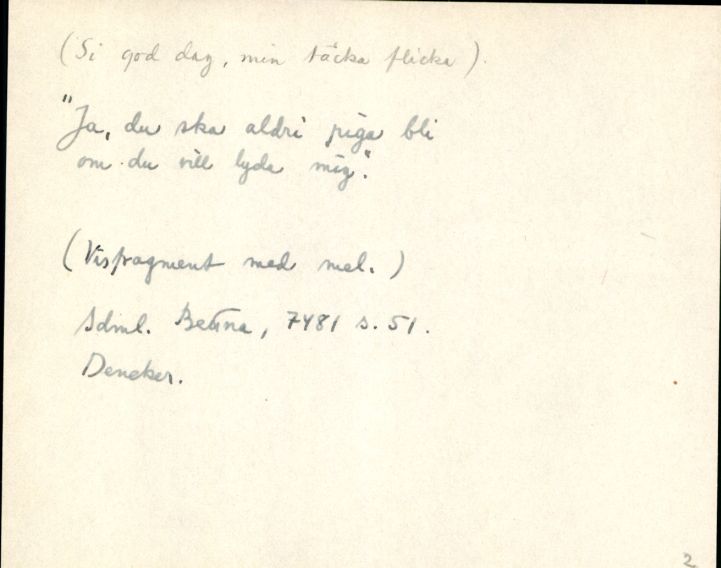 (Si god dag, min täcka flicka).
"Ja, du ska aldri piga bli
om du vill lyda mig".
(Visfragment med mel.)
Sdml. Betna, 7481 s. 51.
Deneker.
2